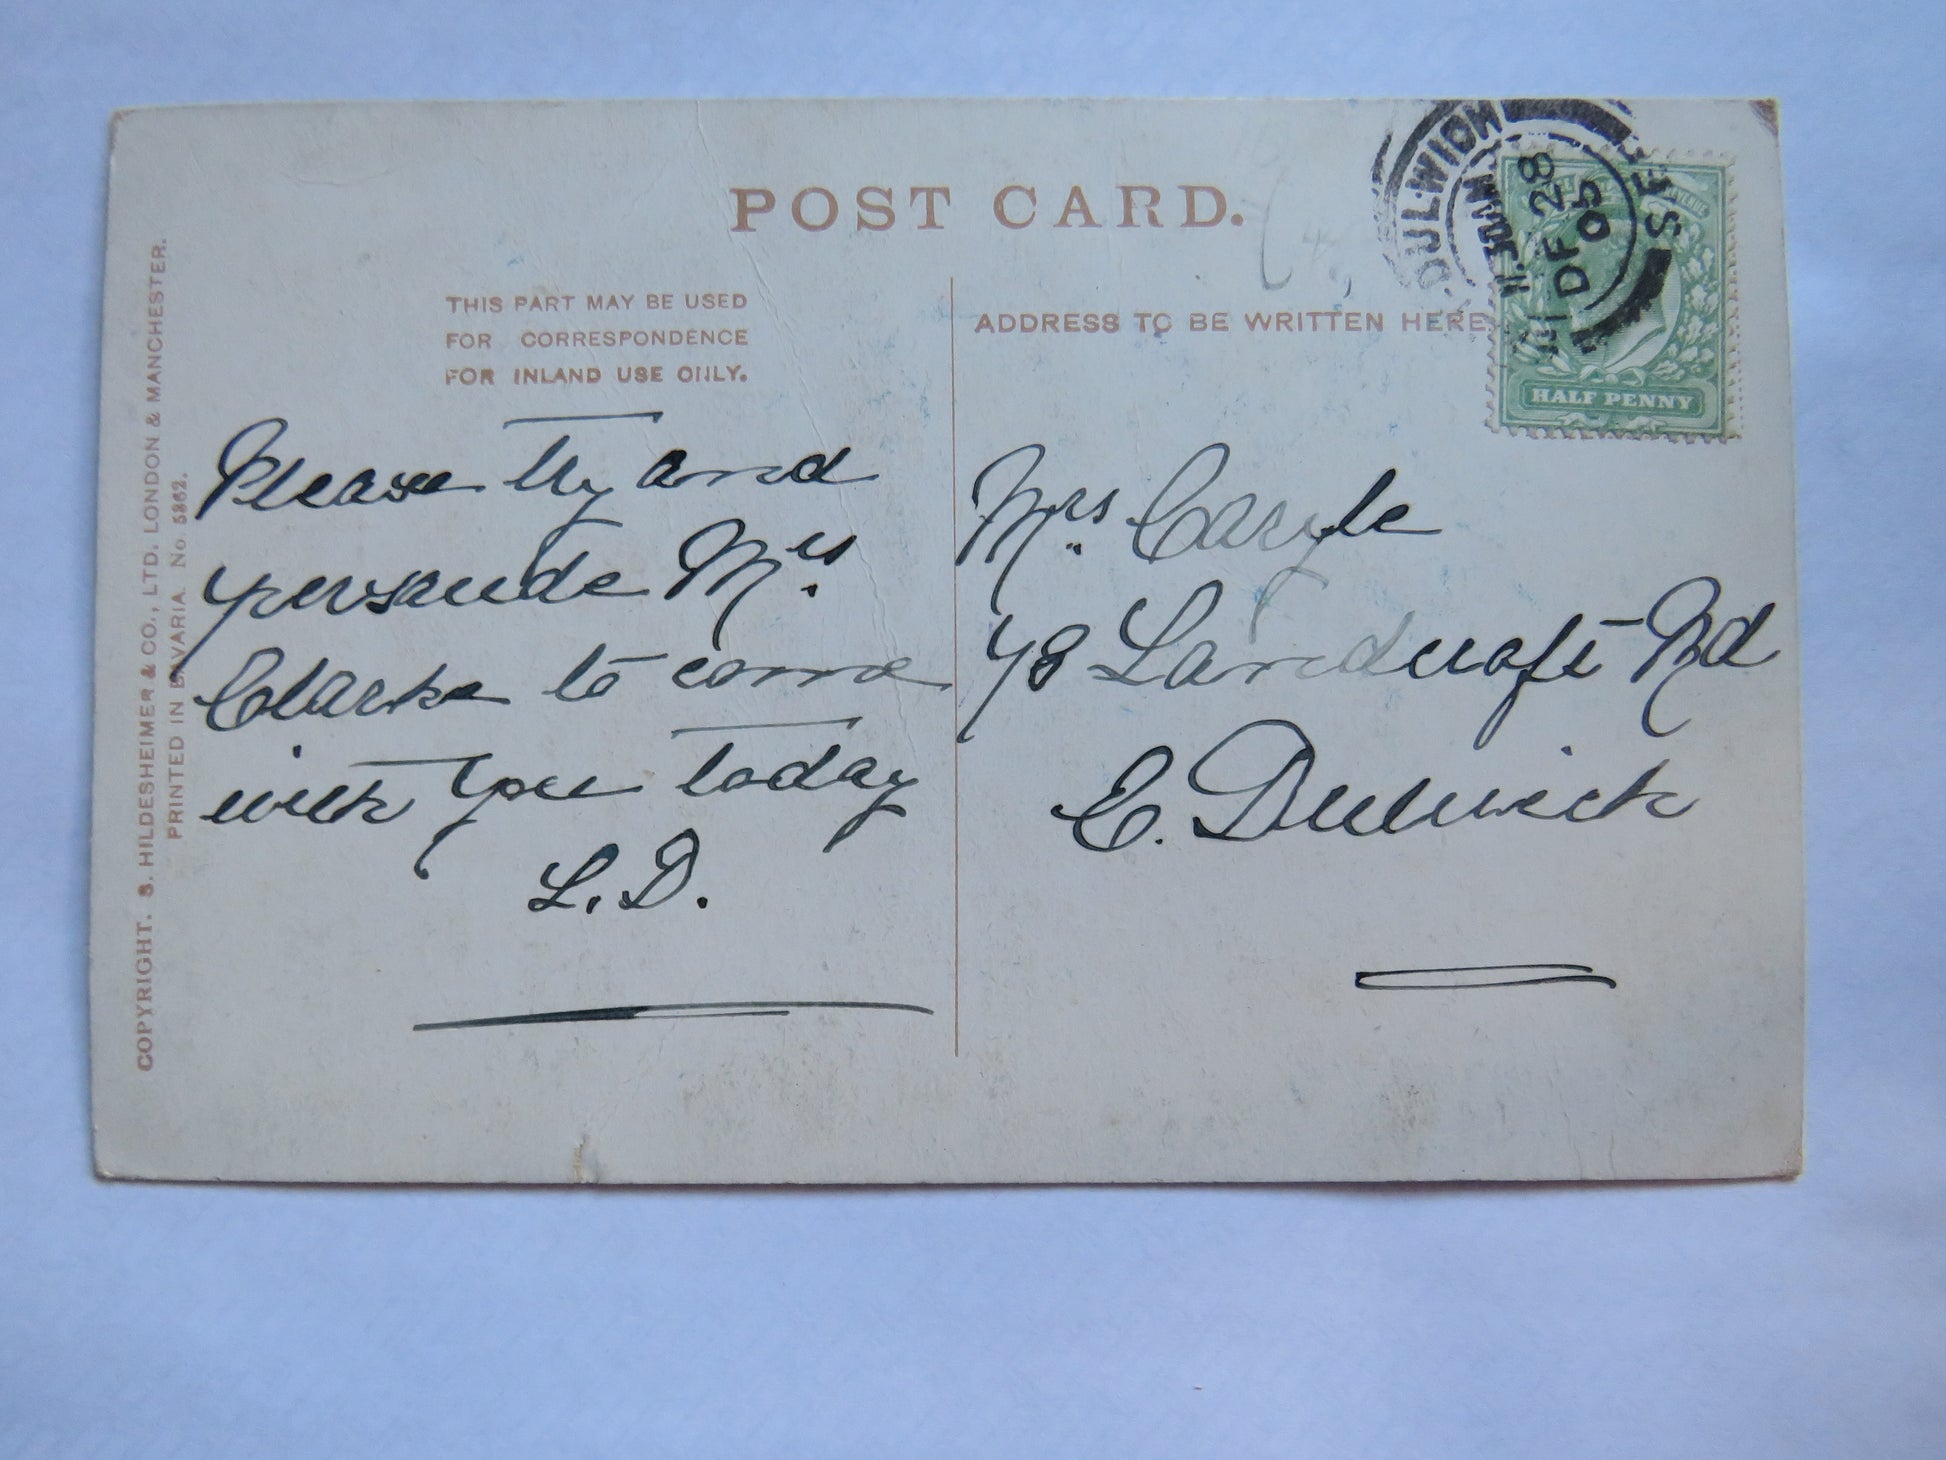 POST CARD.
THIS PART MAY BE USED
FOR CORRESPONDENCE
FOR INLAND USE ONLY.
ADDRESS TO BE WRITTEN HERE
Please try and
persuade Mrs.
Clarke to come
with you today
L.D.
Mrs. Caryle
78 Landcroft Rd
E. Dulwich
DULWICH
S.E.
11.30AM
DE 28
05
HALF PENNY
COPYRIGHT. S. HILDESHEIMER & CO., LTD. LONDON & MANCHESTER.
PRINTED IN BAVARIA. No. 5262.